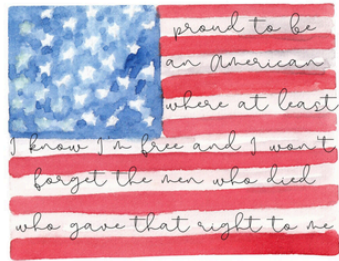 proud to be
an American
where at least
I know I'm free and I won't
forget the men who died
who gave that right to me